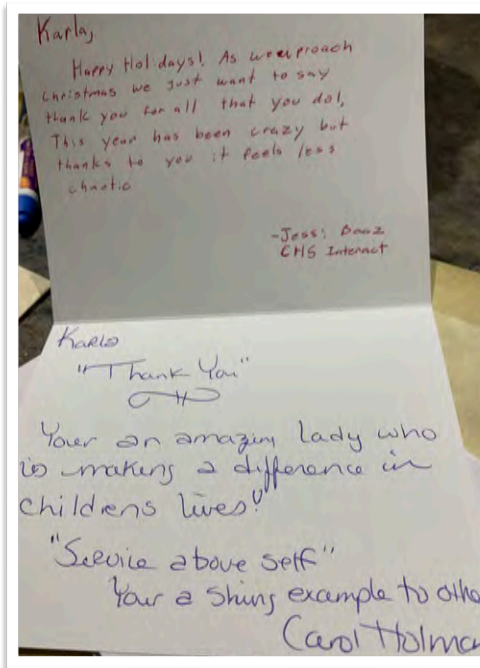 Karla,
Happy Holidays! As we approach
Christmas we just want to say
thank you for all that you do!,
This year has been crazy but
thanks to you it feels less
chaotic
-Jessi Booz
CHS Interact
Karla
"Thank You"
Your an amazing lady who
is making a difference in
childrens lives!"
"Service above self"
Your a shing example to othe
Carol Holman